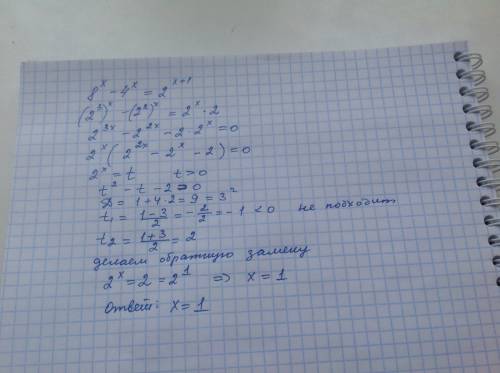 8^x - 4^x = 2^{x+1}
(2^3)^x - (2^2)^x = 2^x · 2
2^{3x} - 2^{2x} - 2 · 2^x = 0
2^x (2^{2x} - 2^x - 2) = 0
2^x = t t > 0
t^2 - t - 2 = 0
D = 1 + 4 · 2 = 9 = 3^2
t_1 = \frac{1-3}{2} = -\frac{2}{2} = -1 < 0 не подходит
t_2 = \frac{1+3}{2} = 2
делаем обратную замену
2^x = 2 = 2^1 ⇒ x = 1
Ответ: x = 1